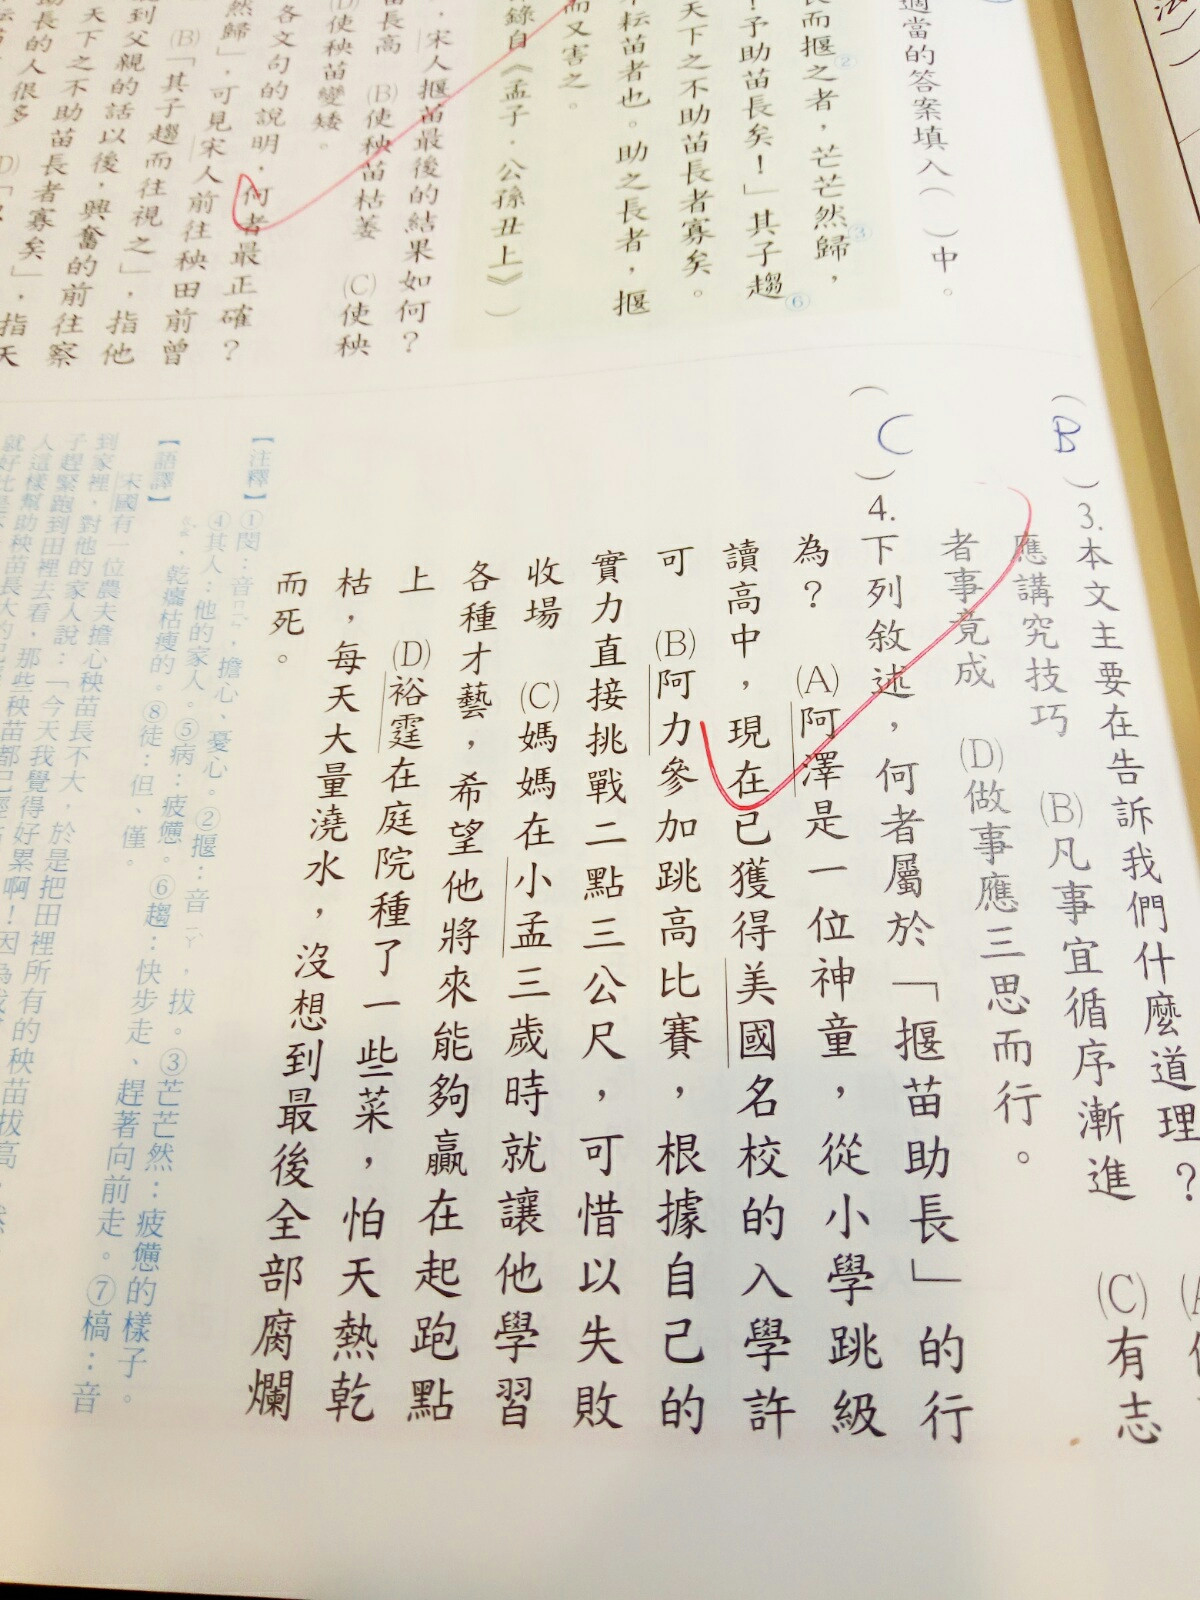 適當的答案填入（　）中。
長而揠之者，芒芒然歸，
！予助苗長矣！」其子趨
天下之不助苗長者寡矣。
耘苗者也。助之長者，揠
而又害之。
錄自《孟子．公孫丑上》）
，宋人揠苗最後的結果如何？
苗長高　(B)使秧苗枯萎　(C)使秧
(D)使秧苗變矮。
各文句的說明，何者最正確？
然歸」，可見宋人前往秧田前曾
(B)「其子趨而往視之」，指他
到父親的話以後，興奮的前往察
天下之不助苗長者寡矣」，指天
長的人很多
（B）3.本文主要在告訴我們什麼道理？
應講究技巧　(B)凡事宜循序漸進　(C)有志
者事竟成　(D)做事應三思而行。
（C）4.下列敘述，何者屬於「揠苗助長」的行
為？　(A)阿澤是一位神童，從小學跳級
讀高中，現在已獲得美國名校的入學許
可　(B)阿力參加跳高比賽，根據自己的
實力直接挑戰二點三公尺，可惜以失敗
收場　(C)媽媽在小孟三歲時就讓他學習
各種才藝，希望他將來能夠贏在起跑點
上　(D)裕霆在庭院種了一些菜，怕天熱乾
枯，每天大量澆水，沒想到最後全部腐爛
而死。
【注釋】①閔：音ㄇㄧㄣˇ，擔心、憂心。②揠：音ㄧㄚˋ，拔。③芒芒然：疲憊的樣子。
④其人：他的家人。⑤病：疲憊。⑥趨：快步走、趕著向前走。⑦槁：音
，乾癟枯瘦的。⑧徒：但、僅。
【語譯】
宋國有一位農夫擔心秧苗長不大，於是把田裡所有的秧苗拔高，然
到家裡，對他的家人說：「今天我覺得好累啊！因為我
子趕緊跑到田裡去看，那些秧苗都已經
人這樣幫助秧苗長大的
就好比是